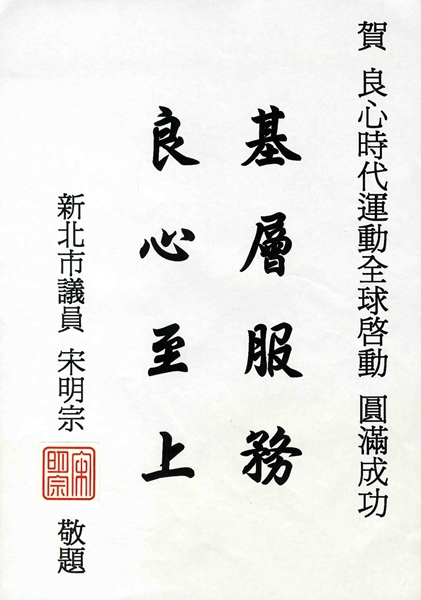 賀 良心時代運動全球啓動 圓滿成功
基層服務
良心至上
新北市議員 宋明宗 敬題
宋明宗